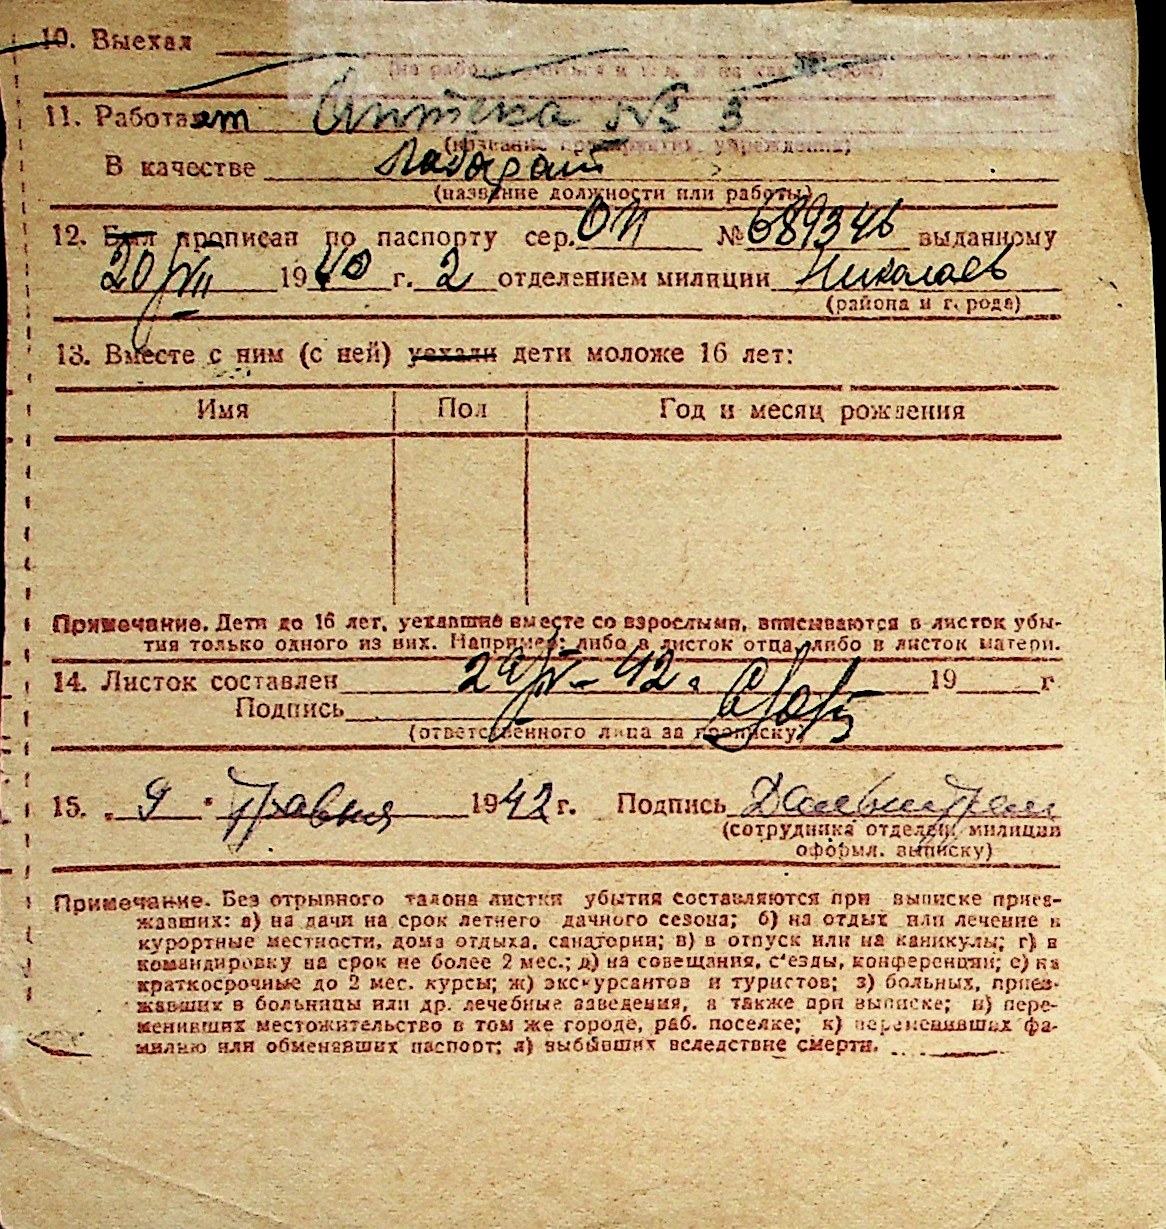 10. Выехал
11. Работает Аптека № 3
(название предприятия, учреждения)
В качестве
(название должности или работы)
12. Был прописан по паспорту сер. ОП № 689346 выданному
20/VII 1940 г. 2 отделением милиции Николаев
(района и города)
13. Вместе с ним (с ней) уехали дети моложе 16 лет:
Имя Пол Год и месяц рождения
Примечание. Дети до 16 лет, уехавшие вместе со взрослыми, вписываются в листок убы-
тия только одного из них. Например: либо в листок отца, либо в листок матери.
14. Листок составлен 42 19 г.
Подпись
(ответственного лица за прописку)
15. „ 9 " Травня 1942 г. Подпись
(сотрудника отделен. милиции
оформл. выписку)
Примечание. Без отрывного талона листки убытия составляются при выписке приез-
жавших: а) на дачи на срок летнего дачного сезона; б) на отдых или лечение в
курортные местности, дома отдыха, санатории; в) в отпуск или на каникулы; г) в
командировку на срок не более 2 мес.; д) на совещания, с'езды, конференции; е) на
краткосрочные до 2 мес. курсы; ж) экскурсантов и туристов; з) больных, приез-
жавших в больницы или др. лечебные заведения, а также при выписке; и) пере-
менивших местожительство в том же городе, раб. поселке; к) переменивших фа-
милию или обменявших паспорт; л) выбывших вследствие смерти.